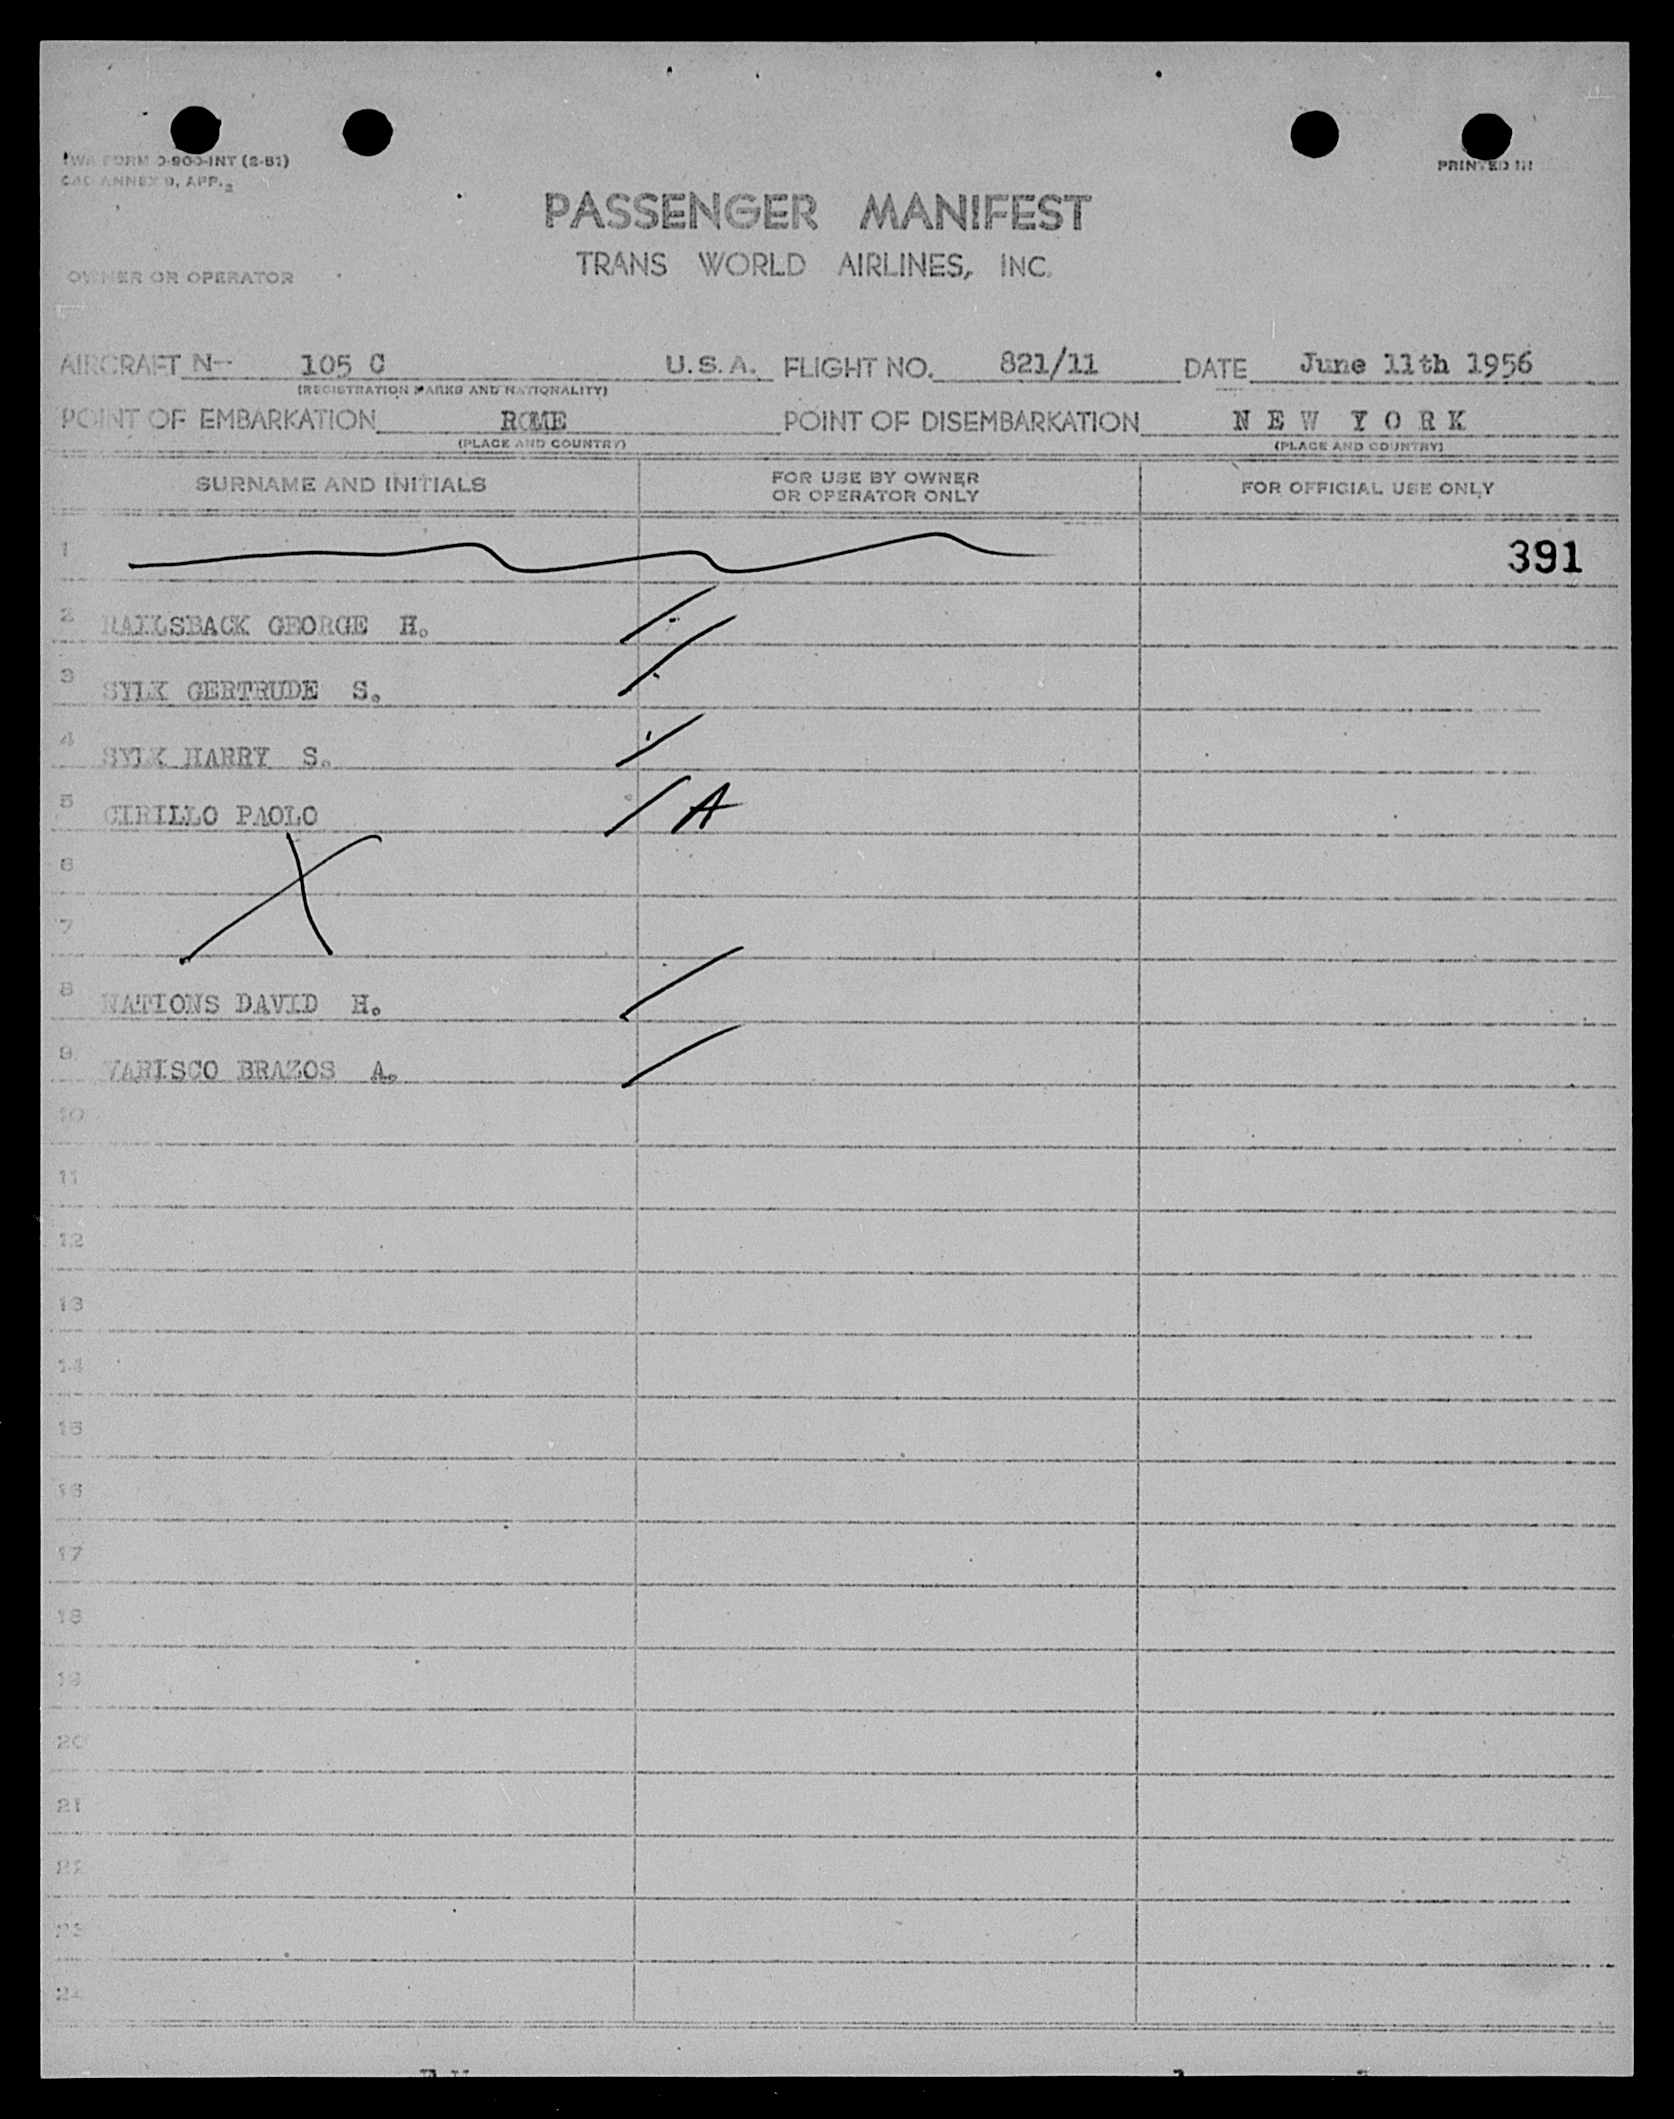 TWA FORM O-900-INT (2-51)
PRINTED IN
ANNEX 9, APP. 2
PASSENGER MANIFEST
TRANS WORLD AIRLINES, INC.
OWNER OR OPERATOR
AIRCRAFT N-- 105 C U.S.A. FLIGHT NO. 821/11 DATE June 11th 1956
(REGISTRATION MARKS AND NATIONALITY)
POINT OF EMBARKATION ROME POINT OF DISEMBARKATION N E W Y O R K
(PLACE AND COUNTRY) (PLACE AND COUNTRY)
SURNAME AND INITIALS FOR USE BY OWNER OR OPERATOR ONLY FOR OFFICIAL USE ONLY
1 391
2 RAILSBACK GEORGE H.
3 SYLK GERTRUDE S.
4 SYLK HARRY S.
5 CIRILLO PAOLO A
6
7
8 NATIONS DAVID H.
9 VARISCO BRAZOS A.
10
11
12
13
14
15
16
17
18
19
20
21
22
23
24